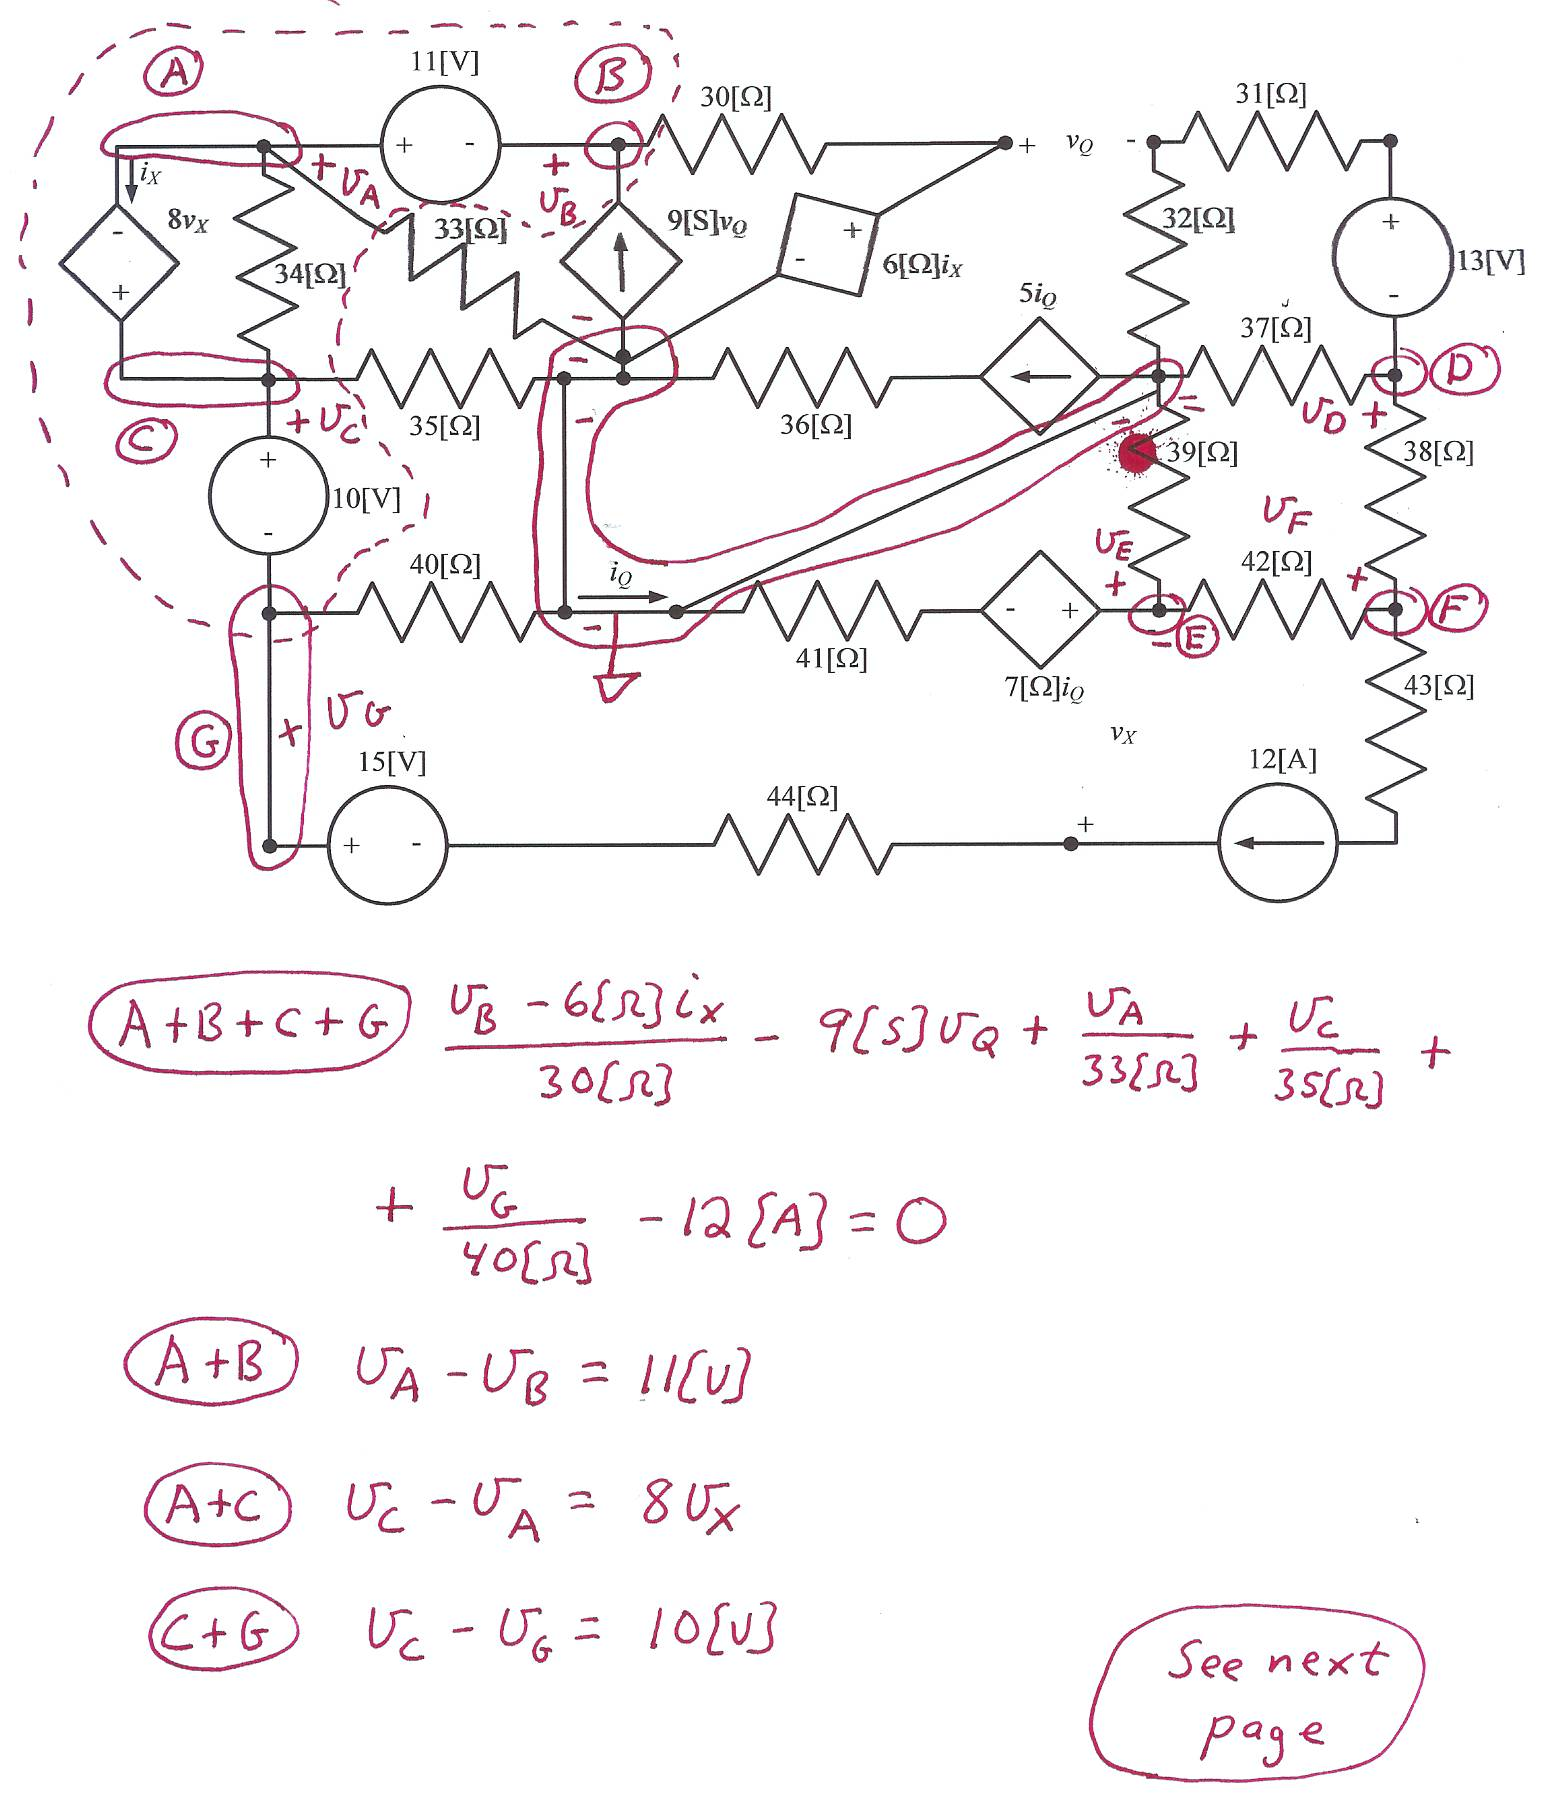 A
11[V]
B
30[Ω]
31[Ω]
+ -
+ vQ -
iX
+ vA
+
vB
8vX
-
+
33[Ω]
9[S]vQ
32[Ω]
+
-
6[Ω]iX
+
-
13[V]
34[Ω]
5iQ
37[Ω]
-
-
-
D
C
+ vC
35[Ω]
36[Ω]
-
=
vD +
+
-
10[V]
39[Ω]
38[Ω]
vF
vE
+
40[Ω]
iQ
42[Ω]
+
- +
F
-
- E
41[Ω]
7[Ω]iQ
43[Ω]
G
+ vG
vX
15[V]
12[A]
44[Ω]
+
+ -
A+B+C+G vB - 6[Ω]iX / 30[Ω] - 9[S]vQ + vA / 33[Ω] + vC / 35[Ω] +
+ vG / 40[Ω] - 12[A] = 0
A+B vA - vB = 11[V]
A+C vC - vA = 8vX
C+G vC - vG = 10[V]
See next
page